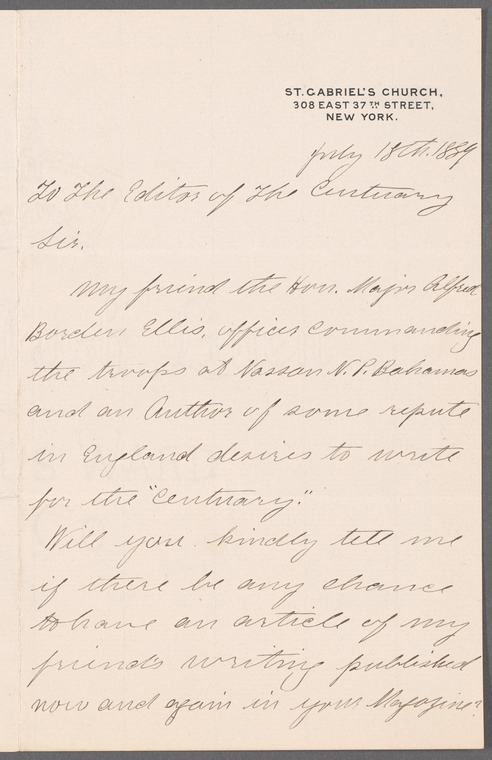 ST. GABRIEL'S CHURCH,
308 EAST 37TH STREET,
NEW YORK.
July 18th. 1889
To The Editor of The Centuary
Sir.
My friend the Hon. Major Alfred
Borden Ellis, officer commanding
the troops at Nassau N.P. Bahamas
and an Author of some repute
in England desires to write
for the "Centuary."
Will you kindly tell me
if there be any chance
to have an article of my
friend's writing published
now and again in your Magazine?